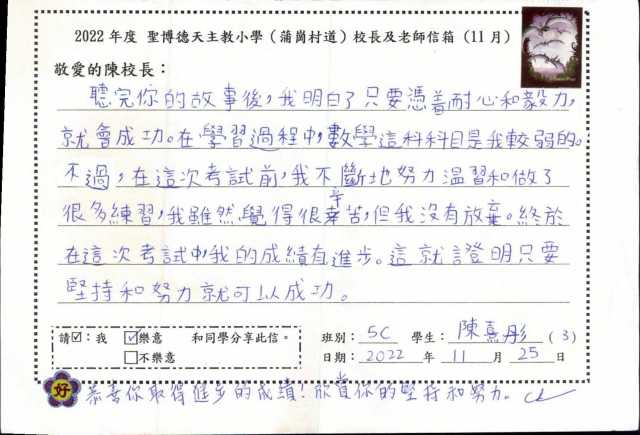 2022 年度 聖博德天主教小學（蒲崗村道）校長及老師信箱（11 月）
敬愛的陳校長：
聽完你的故事後，我明白了只要憑着耐心和毅力，
就會成功。在學習過程中，數學這科科目是我較弱的。
不過，在這次考試前，我不斷地努力溫習和做了
很多練習，我雖然覺得很辛苦，但我沒有放棄。終於
在這次考試中，我的成績有進步。這就證明只要
堅持和努力就可以成功。
請☑：我 ☑樂意 和同學分享此信。
☐不樂意
班別：5C 學生：陳熹彤 (3)
日期：2022 年 11 月 25 日
好 恭喜你取得進步的成績！欣賞你的堅持和努力。